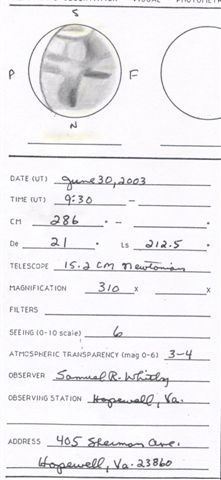 OBSERVATION VISUAL
S
P F
N
DATE (UT) June 30, 2003
TIME (UT) 9:30 -
CM 286 ° - °
De 21 ° Ls 212.5 °
TELESCOPE 15.2 CM Newtonian
MAGNIFICATION 310 x x
FILTERS
SEEING (0-10 scale) 6
ATMOSPHERIC TRANSPARENCY (mag 0-6) 3-4
OBSERVER Samuel R. Whitby
OBSERVING STATION Hopewell, Va.
ADDRESS 405 Sherman Ave.
Hopewell, Va. 23860